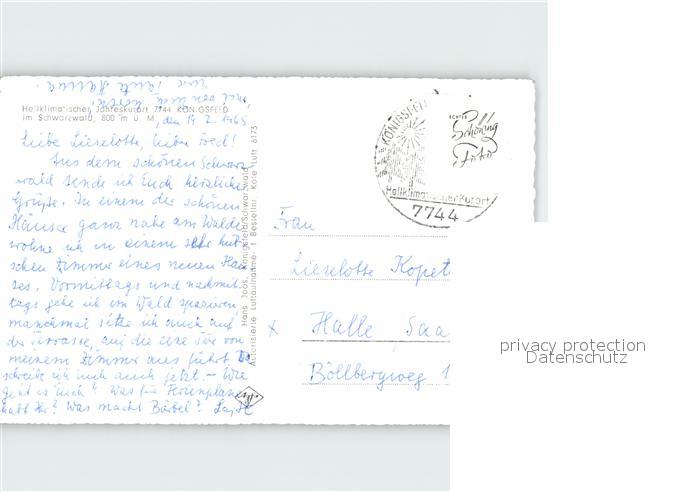 Heilklimatischer Jahreskurort 7744 KÖNIGSFELD
im Schwarzwald, 800 m ü. M.
den 19. 2. 1965
Liebe Lieselotte, lieber Fred!
Aus dem schönen Schwarz-
wald sende ich Euch herzliche
Grüße. In einem der schönen
Häuser ganz nahe am Walde
wohne ich in einem sehr hüb-
schen Zimmer eines neuen Hau-
ses. Vormittags und nachmit-
tags gehe ich im Wald spazieren,
manchmal sitze ich auch auf
der Terrasse, auf die eine Tür von
meinem Zimmer aus führt. Da
schreibe ich Euch auch jetzt. – Wie
geht es Euch? Was für Ferienpläne
habt Ihr? Was macht Bärbel? Laßt
mal von Euch hören!
Eure Tante Hanna.
Hans Joos, Königsfeld/Schwarzwald
Autorisierte Luftaufnahme: 1 Besselinr Kore Luft 6173
KÖNIGSFELD
Heilklimatischer Kurort
7744
ECHTES
Schöning
Foto
Frau
Lieselotte Kopet
x Halle Saa
Böllbergweg 1
privacy protection
Datenschutz